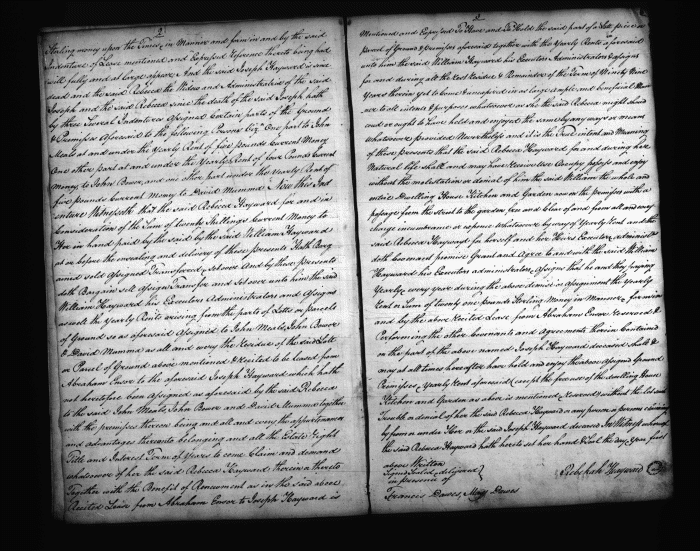 2
Sterling money upon the Times, in Manner and form in and by the said
Indenture of Lease mentioned and Expressed Reference thereto being had
will fully and at large appear And the said Joseph Hayward is since
dead and the said Rebecca the Widow and Administratrix of the said
Joseph and the said Rebecca since the death of the said Joseph hath
by three Several Indentures Assigned Certain parts of the Ground
& Premisses Aforesaid to the following Persons Viz. One part to John
Meals at and under the Yearly Rent of five pounds Current Money
One other part at and under the Yearly Rent of four Pounds Current
Money to John Bower, and one other part under the Yearly Rent of
five pounds Current Money to David Mumma Now this Ind
enture Witnesseth that the said Rebecca Hayward for and in
Consideration of the Sum of twenty Shillings Current Money to
Her in hand paid by the said William Hayward
at or before the ensealing and delivery of these Presents Hath Barg
ained Sold Assigned Transferred & Set over And by these presents
doth Bargain Sell Assign Transfer and Set over unto him the said
William Hayward his Executors Administrators and Assigns
as well the Yearly Rents arising from the parts of Lotts or parcels
of Ground so as aforesaid Assigned to John Meals, John Bower
& David Mumma as all and every the Residue of the said Lott
or Parcel of Ground above mentioned & Recited to be leased from
Abraham Ensor to the aforesaid Joseph Hayward which hath
not heretofore been Assigned as aforesaid by the said Rebecca
to the said John Meals John Bower and David Mumma together
with the premisses thereon being and all and every the appurtenances
and advantages thereunto belonging and all the Estate Right
Title and Interest Term of Years to come Claim and demand
whatsoever of her the said Rebecca Hayward therein or thereto
Together with the Benefit of Renewment as in the said above
Recited Lease from Abraham Ensor to Joseph Hayward is
Mentioned and Expressed To Have and to Hold the said part of a Lott piece or
parcel of Ground & premisses aforesaid together with the Yearly Rents aforesaid
unto him the said William Hayward his Executors Administrators & Assigns
for and during all the Rest Residue & Remainder of the Term of Ninety Nine
Years therein yet to Come & unexpired in as large ample and beneficial Manner
to all intents & purposes whatsoever as she the said Rebecca might should
could or ought to have held and enjoyed the same by any ways or means
whatsoever provided Nevertheless and it is the true intent and Meaning
of these presents that the said Rebecca Hayward for and during her
Natural life shall and may have receive use Occupy possess and enjoy
without the molestation or denial of him the said William the whole and
entire Dwelling House Kitchen and Garden now on the premises with a
passage from the Street to the garden free and Clear of and from all and every
charge incumbrance or expence whatsoever by way of Yearly Rent and the
said Rebecca Hayward for herself and her Heirs Executors & Administrators
doth Covenant promise Grant and Agree to and with the said William
Hayward his Executors administrators & Assigns that he and they paying
Yearly & every year during the above demise or Assignment the Yearly
Rent or Sum of twenty one pounds Sterling Money in Manner & form as in
and by the above Recited Lease from Abraham Ensor is reserved &
Performing the other Covenants and Agreements therein Contained
on the part of the above named Joseph Hayward deceased shall &
may at all times hereafter have hold and enjoy the above Assigned Ground
Premisses & Yearly Rent aforesaid (except the free use of the dwelling House
Kitchen and Garden as above is mentioned & reserved) without the let suit
Trouble or denial of her the said Rebecca Hayward or any person or persons claiming
by from or under Her or the said Joseph Hayward deceased In Witness whereof
the said Rebecca Hayward hath hereto set her hand & Seal the day & Year first
above Written
Signed Sealed & delivered
in presence of
Rebekah Hayward
Francis Dawes, Mary Dawes